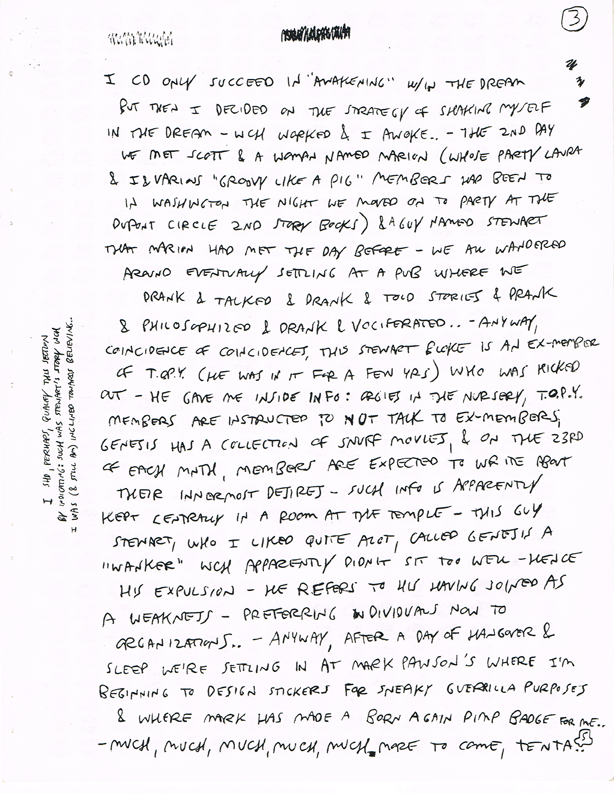 3
I CD ONLY SUCCEED IN "AWAKENING" W/IN THE DREAM
BUT THEN I DECIDED ON THE STRATEGY OF SHAKING MYSELF
IN THE DREAM - WCH WORKED & I AWOKE.. - THE 2ND DAY
WE MET SCOTT & A WOMAN NAMED MARION (WHOSE PARTY LAURA
& I & VARIOUS "GROOVY LIKE A PIG" MEMBERS HAD BEEN TO
IN WASHINGTON THE NIGHT WE MOVED ON TO PARTY AT THE
DUPONT CIRCLE 2ND STORY BOOKS) & A GUY NAMED STEWART
THAT MARION HAD MET THE DAY BEFORE - WE ALL WANDERED
AROUND EVENTUALLY SETTLING AT A PUB WHERE WE
DRANK & TALKED & DRANK & TOLD STORIES & DRANK
& PHILOSOPHIZED & DRANK & VOCIFERATED.. - ANYWAY,
COINCIDENCE OF COINCIDENCES, THIS STEWART BLOKE IS AN EX-MEMBER
OF T.O.P.Y. (HE WAS IN IT FOR A FEW YRS) WHO WAS KICKED
OUT - HE GAVE ME INSIDE INFO: ORGIES IN THE NURSERY, T.O.P.Y.
MEMBERS ARE INSTRUCTED TO NOT TALK TO EX-MEMBERS,
GENESIS HAS A COLLECTION OF SNUFF MOVIES, & ON THE 23RD
OF EACH MNTH, MEMBERS ARE EXPECTED TO WRITE ABOUT
THEIR INNERMOST DESIRES - SUCH INFO IS APPARENTLY
KEPT CENTRALLY IN A ROOM AT THE TEMPLE - THIS GUY
STEWART, WHO I LIKED QUITE ALOT, CALLED GENESIS A
"WANKER" WCH APPARENTLY DIDN'T SIT TOO WELL - HENCE
HIS EXPULSION - HE REFERS TO HIS HAVING JOINED AS
A WEAKNESS - PREFERRING INDIVIDUALS NOW TO
ORGANIZATIONS.. - ANYWAY, AFTER A DAY OF HANGOVER &
SLEEP WE'RE SETTLING IN AT MARK PAWSON'S WHERE I'M
BEGINNING TO DESIGN STICKERS FOR SNEAKY GUERRILLA PURPOSES
& WHERE MARK HAS MADE A BORN AGAIN PIMP BADGE FOR ME..
- MUCH, MUCH, MUCH, MUCH, MUCH MORE TO COME, TENTA
I SHD, PERHAPS, QUALIFY THIS SECTION
BY INDICATING: SUCH WAS STEWART'S STORY WCH
I WAS (& STILL AM) INCLINED TOWARD BELIEVING..